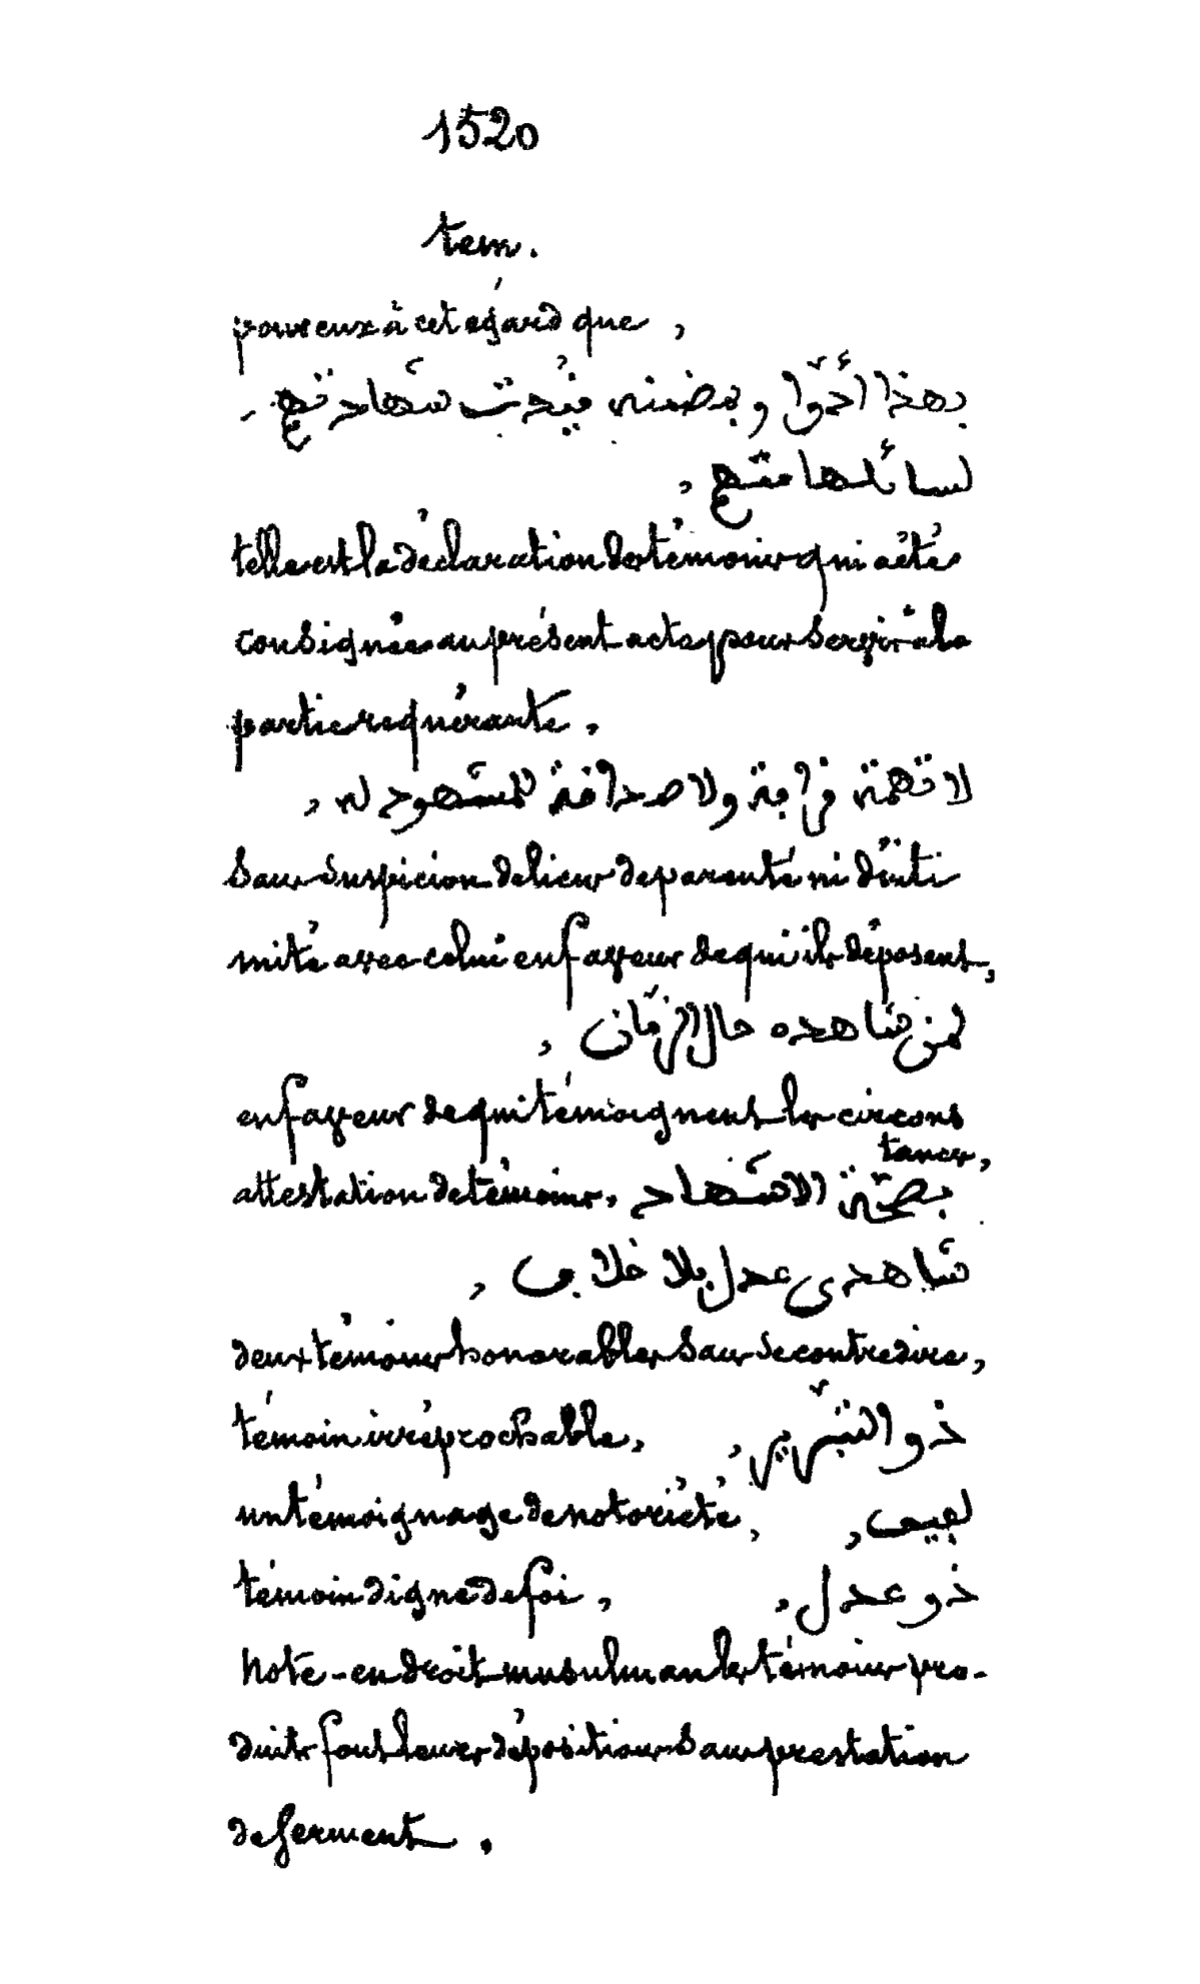 1520
tem.
pour eux à cet égard que,
بهذا أدّوا وبمضمنه قيّدت شهادتهم
لسائلها منهم,
telle est la déclaration des témoins qui a été
consignée au présent acte pour servir à la
partie requérante.
لا تهمة قرابة ولا صداقة للمشهود له,
sans suspicion de liens de parenté ni d'inti
mité avec celui en faveur de qui ils déposent,
لمن شاهده حال الزمان,
en faveur de qui témoignent les circons
tances,
attestation de témoins, بصحّة الاشهاد
شاهدى عدل بلا خلاف,
deux témoins honorables sans se contredire,
témoin irréprochable, ذو التبريز,
un témoignage de notoriété, لفيف,
témoin digne de foi, ذو عدل,
Note - en droit musulman les témoins pro-
duits font leurs dépositions sans prestation
de serment.